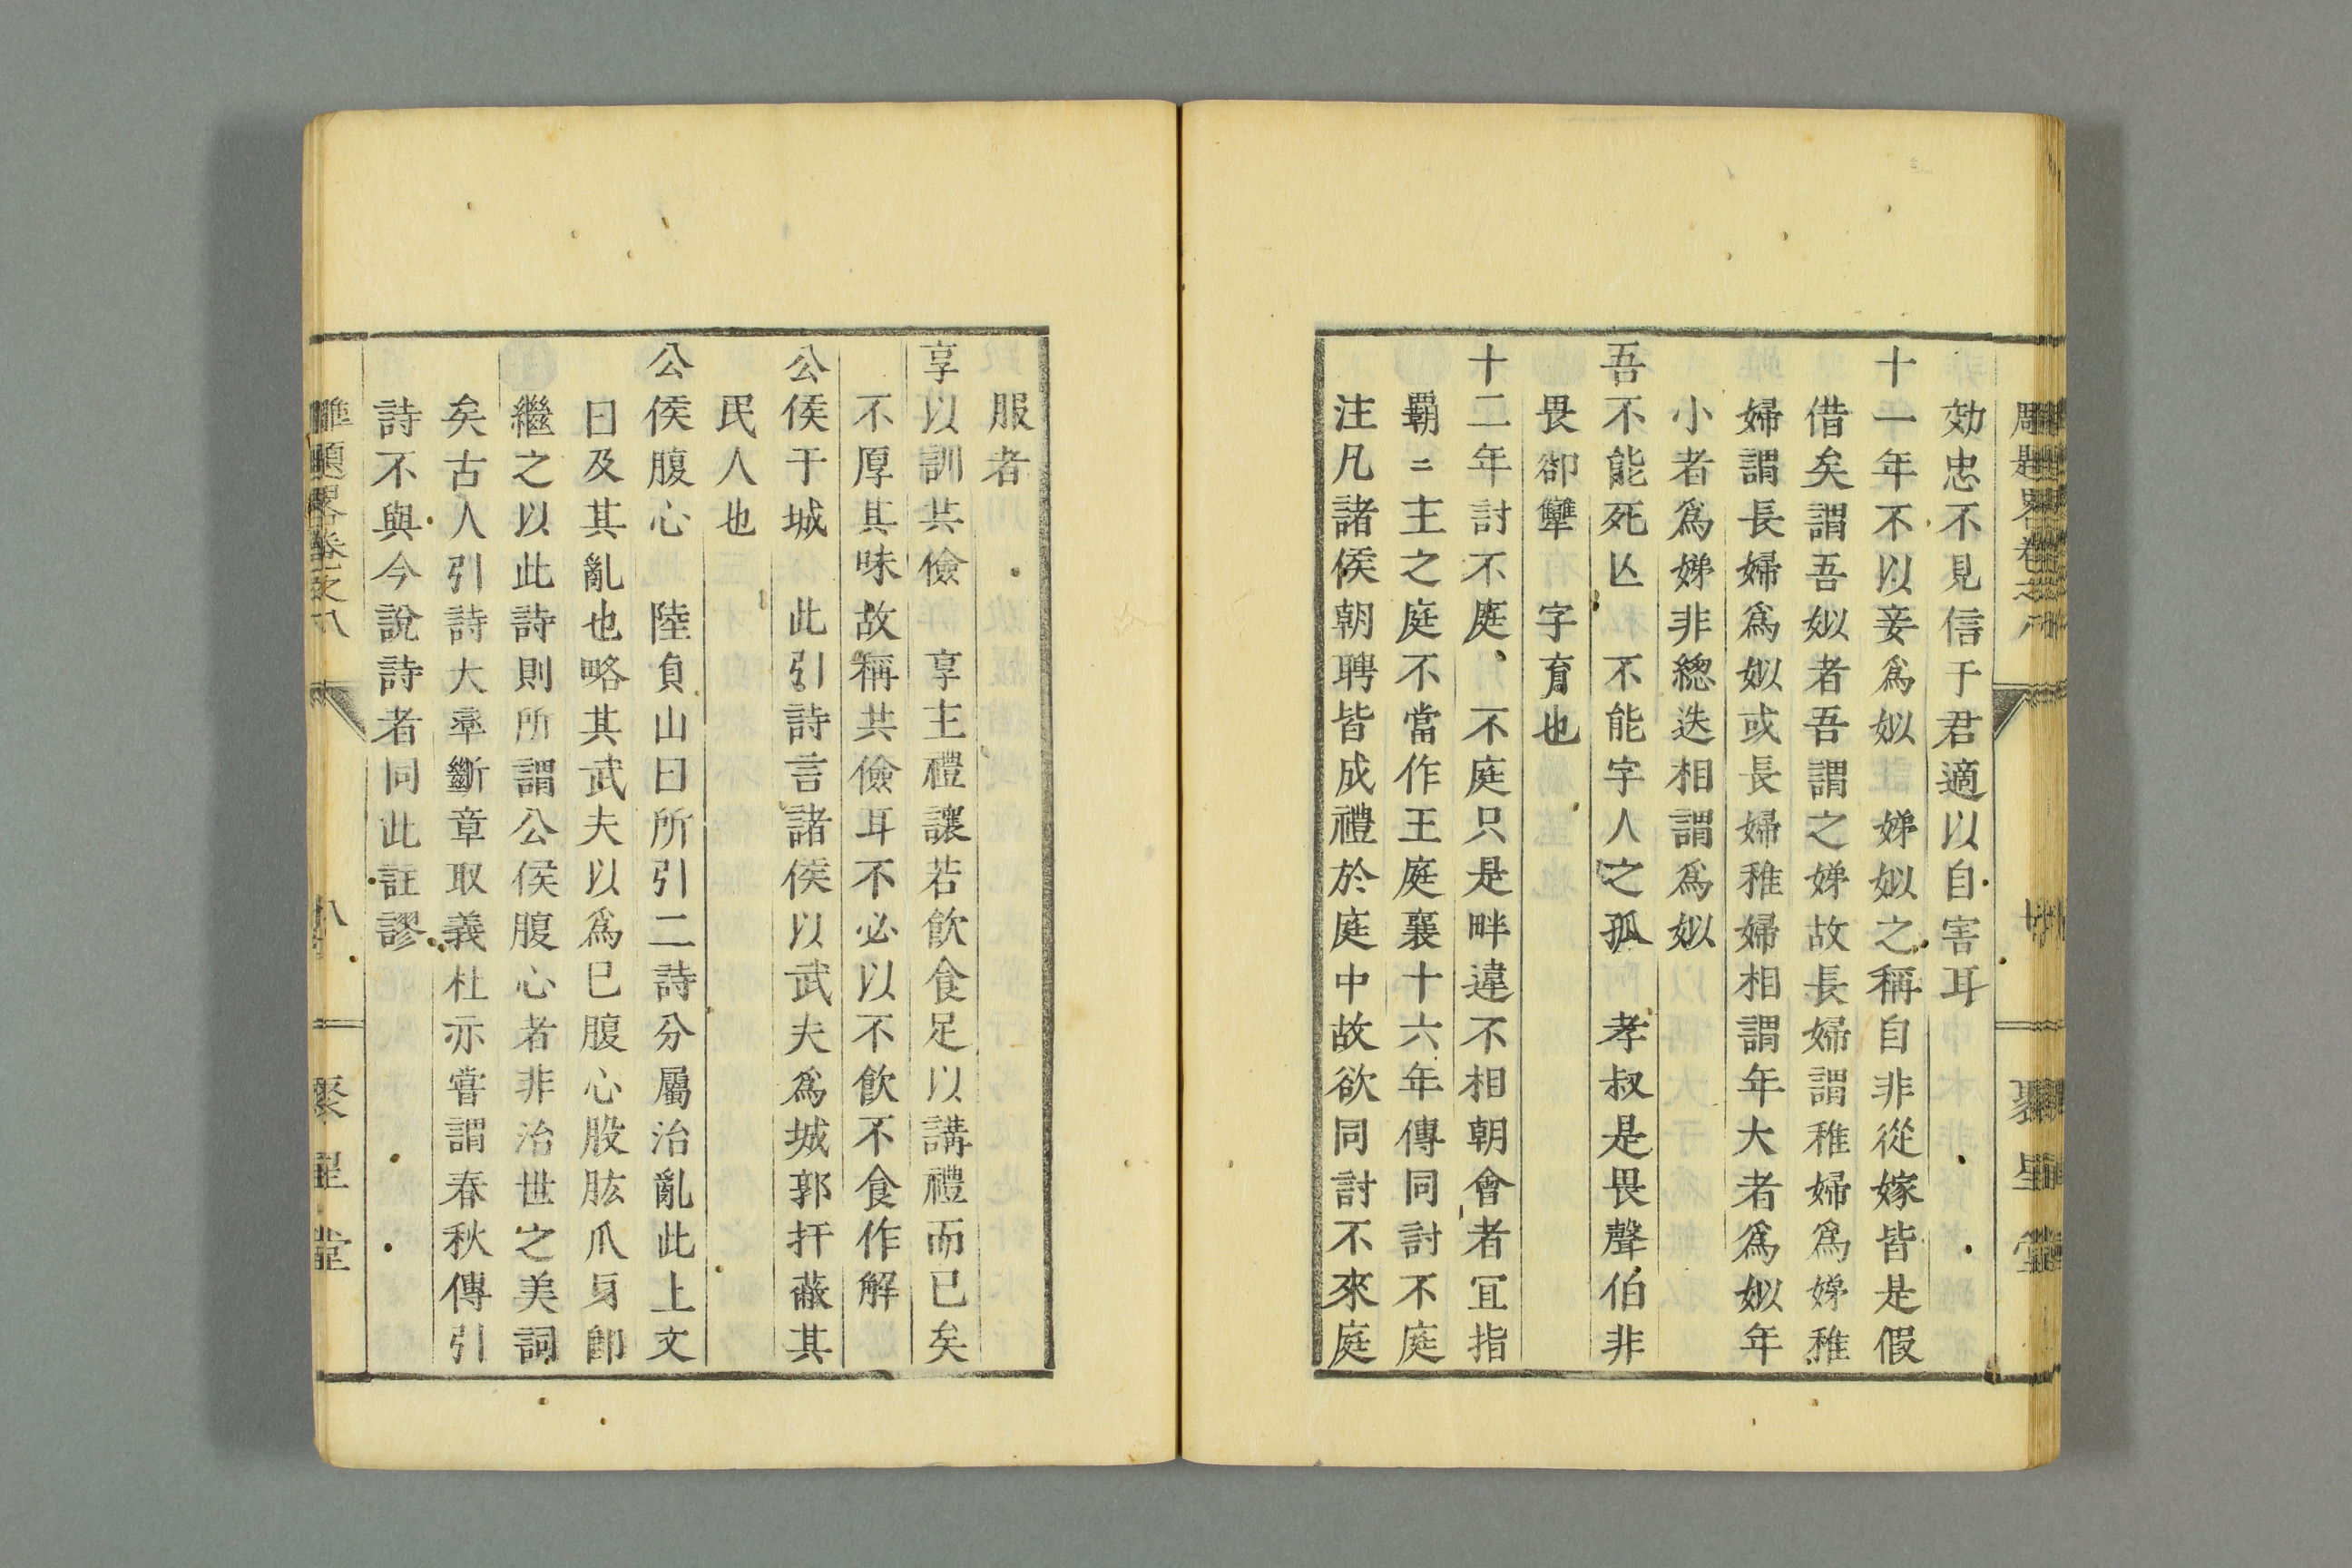 効忠不見信于君適以自害耳
十一年不以妾爲姒 娣姒之稱自非從嫁皆是假
借矣謂吾姒者吾謂之娣故長婦謂稚婦爲娣稚
婦謂長婦爲姒或長婦稚婦相謂年大者爲姒年
小者爲娣非總迭相謂爲姒
吾不能死亾 不能字人之孤 孝叔是畏聲伯非
畏郤犨 字育也
十二年討不庭 不庭只是畔違不相朝會者冝指
覇〻主之庭不當作王庭襄十六年傳同討不庭
注凡諸侯朝聘皆成禮於庭中故欲同討不來庭
服者
享以訓共儉 享主禮讓若飲食足以講禮而已矣
不厚其味故稱共儉耳不必以不飲不食作解
公侯干城 此引詩言諸侯以武夫爲城郭扞蔽其
民人也
公侯腹心 陸貞山曰所引二詩分屬治亂此上文
曰及其亂也略其武夫以爲已腹心股肱爪牙卽
繼之以此詩則所謂公侯腹心者非治世之美詞
矣古人引詩大率斷章取義杜亦嘗謂春秋傳引
詩不與今說詩者同此註謬
卷之八
八
聚星堂